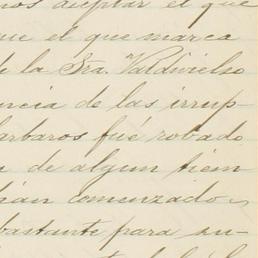 nos aceptar el que
ue el que marca
de la Sra. Valdivielso
encia de las irrup-
barbaros fué robado
a de algun tiem
bian comenzado,
bastante para su-